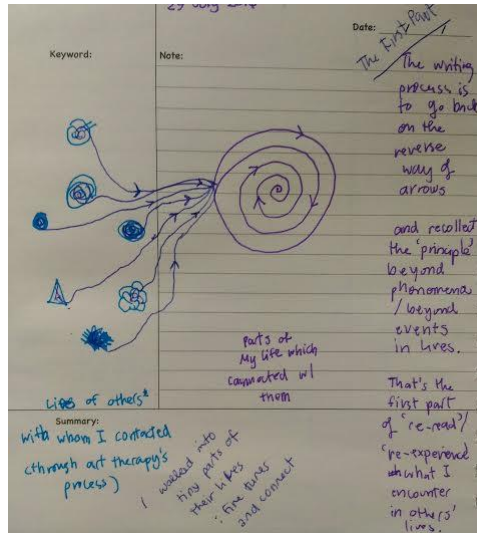 Date:
The First Part
Keyword:
Note:
The writing
process is
to go back
on the
reverse
way of
arrows
and recollect
the 'principle'
beyond
phenomena
/ beyond
events
in lives.
That's the
first part
of 're-read'/
're-experience
what I
encounter
in others'
lives.
parts of
My life which
connected w/
them
Lives of others*
Summary:
with whom I contacted
(through art therapy's
process)
I walked into
tiny parts of
their lives
: fine tunes
and connect